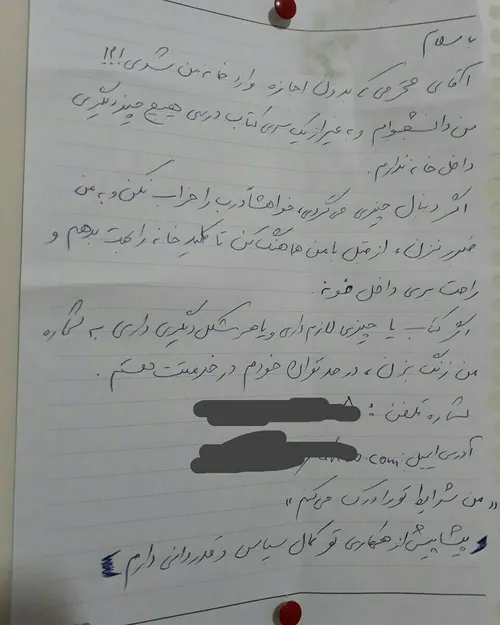 با سلام
آقای محترمی که بدون اجازه وارد خانه من شدی!؟!
من دانشجوام و به غیر از یک سری کتاب درسی هیچ چیز دیگری
داخل خانه ندارم.
اگر دنبال چیزی می‌گردی، خواهشاً درب را خراب نکن و به من
ضرر نزن، از قبل با من هماهنگ کن تا کلید خانه را بهت بدهم و
راحت بری داخل خونه.
اگر کتاب یا چیزی لازم داری و یا هر مشکل دیگری داری به شماره
من زنگ بزن، در حد توان خودم در خدمتت هستم.
شماره تلفن: ۸
آدرس ایمیل: .com
«من شرایط تو را درک می‌کنم»
پیشاپیش از همکاری تو کمال سپاس و قدردانی دارم